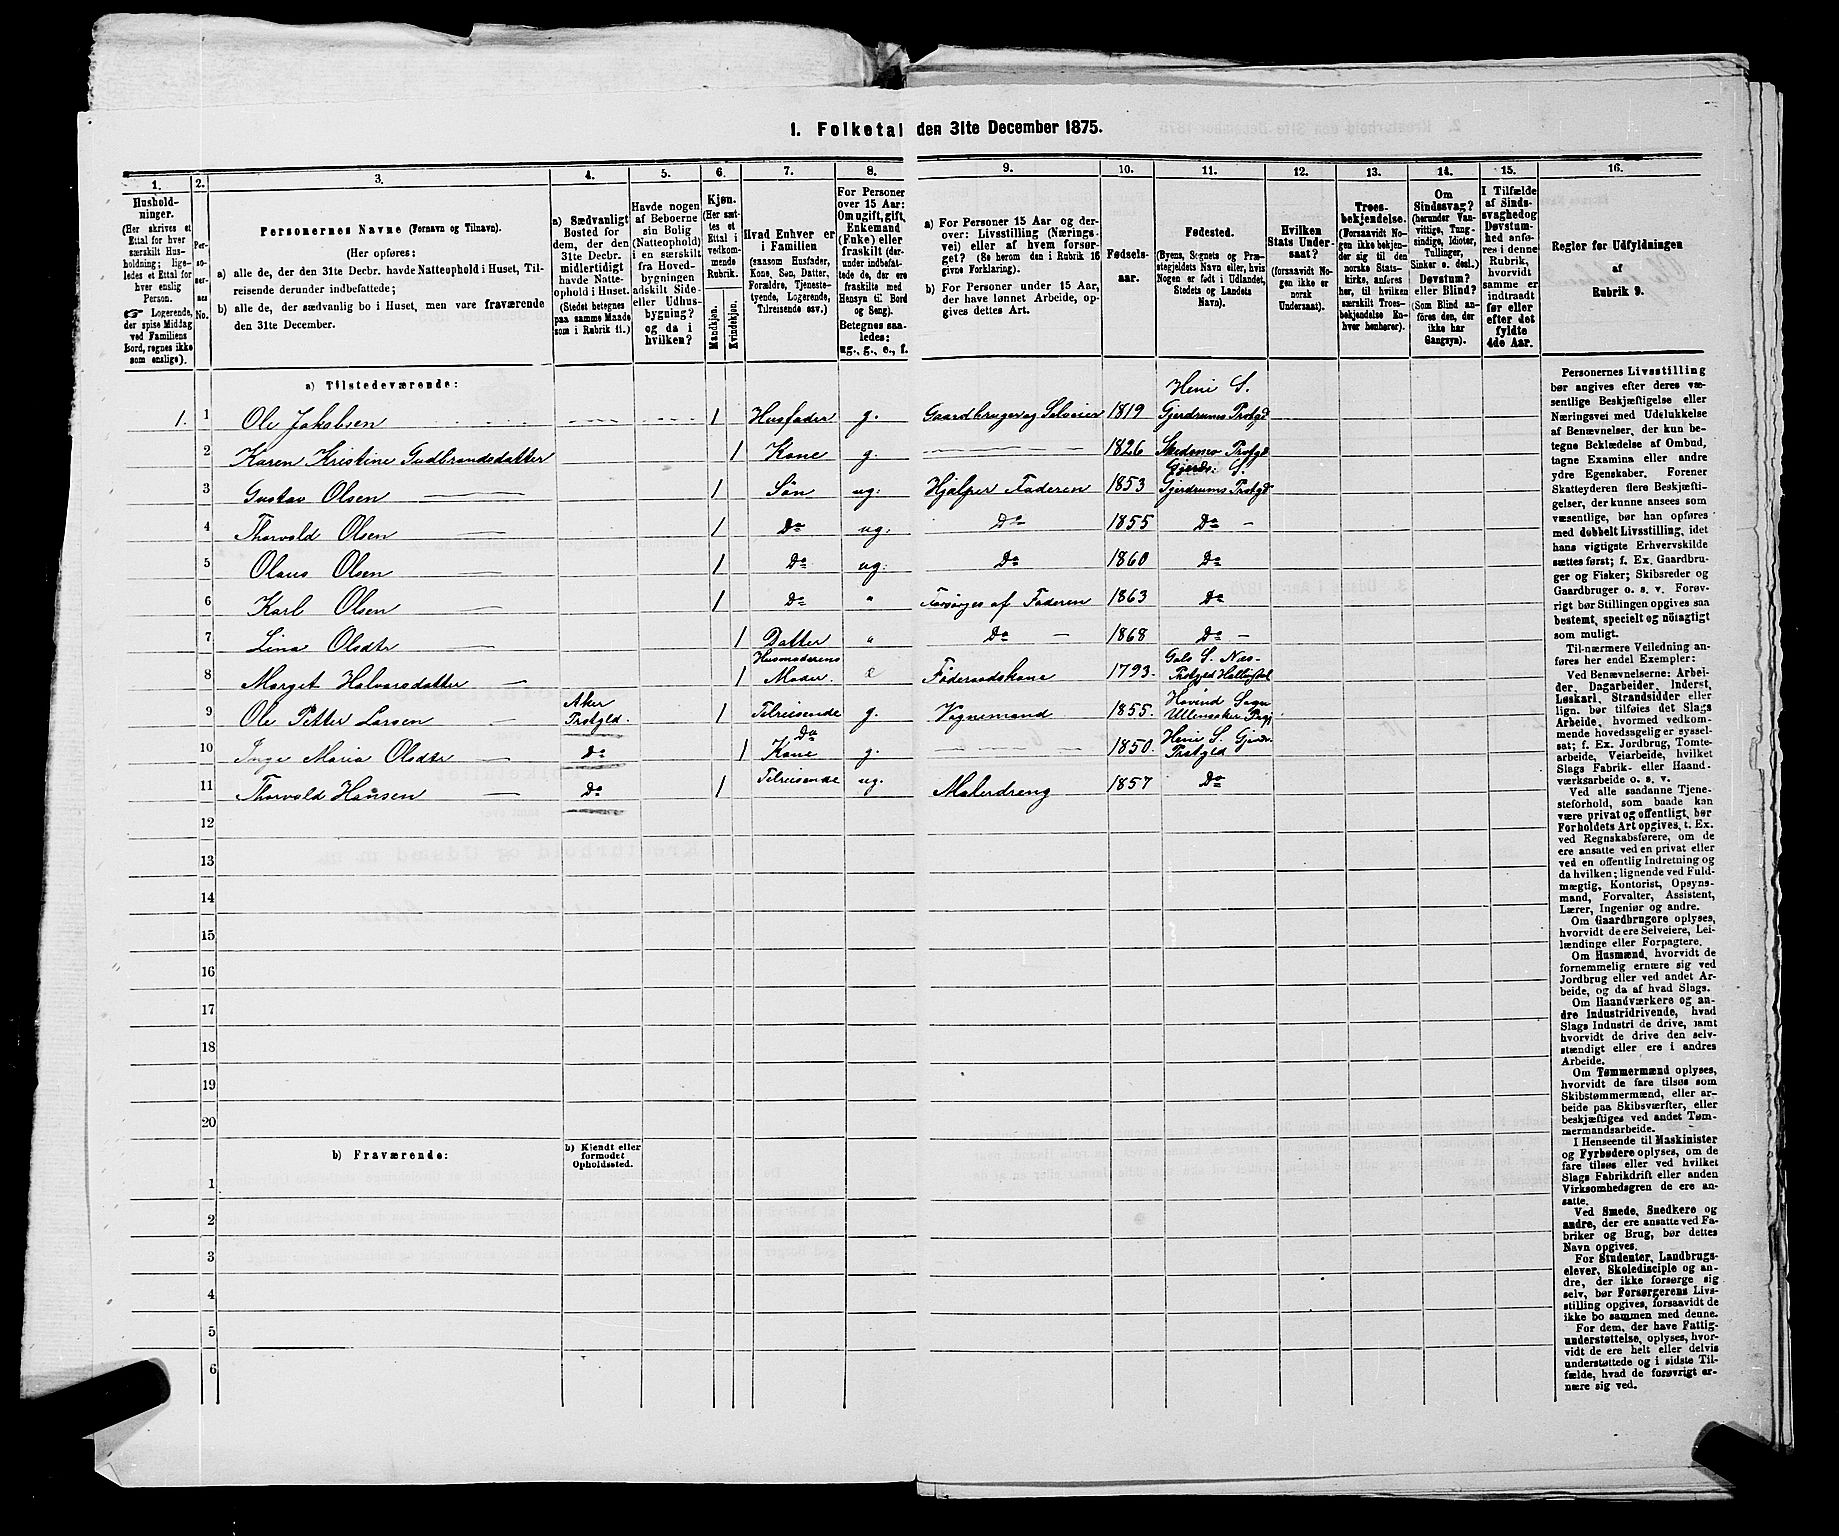 1. Folketal den 31te December 1875.
1.
2.
3.
4.
5.
6.
7.
8.
9.
10.
11.
12.
13.
14.
15.
16.
Husholdninger.
(Her skrives et Ettal for hver særskilt Husholdning; ligeledes et Ettal for hver enslig Person.
☞ Logerende, der spise Middag ved Familiens Bord, regnes ikke som enslige).
Personernes No.
Personernes Navne (Fornavn og Tilnavn).
(Her opføres:
a) alle de, der den 31te Decbr. havde Natteophold i Huset, Tilreisende derunder indbefattede;
b) alle de, der sædvanlig bo i Huset, men vare fraværende den 31te December.
a) Sædvanligt Bosted for dem, der den 31te Decbr. midlertidigt havde Natteophold i Huset. (Stedet betegnes paa samme Maade som i Rubrik 11.)
Havde nogen af Beboerne sin Bolig (Natteophold) i en særskilt fra Hovedbygningen adskilt Side- eller Udhusbygning? og da i hvilken?
Kjøn. (Her sættes et Ettal i vedkommende Rubrik.
Mandkjøn.
Kvindekjøn.
Hvad Enhver er i Familien
(saasom Husfader, Kone, Søn, Datter, Forældre, Tjenestetyende, Logerende, Tilreisende osv.)
For Personer over 15 Aar: Om ugift, gift, Enkemand (Enke) eller fraskilt (derunder indbefattede de, der ere fraskilte med Hensyn til Bord og Seng).
Betegnes saaledes: ug., g., e., f.
a) For Personer 15 Aar og derover: Livsstilling (Næringsvei) eller af hvem forsørget? (Se herom den i Rubrik 16 givne Forklaring).
b) For Personer under 15 Aar, der have lønnet Arbeide, opgives dettes Art.
Fødselsaar.
Fødested.
(Byens, Sognets og Præstegjeldets Navn eller, hvis Nogen er født i Udlandet, Stedets og Landets Navn).
Hvilken Stats Undersaat?
(forsaavidt Nogen ikke er norsk Undersaat).
Troesbekjendelse. (Forsaavidt Nogen ikke bekjender sig til den norske Statskirke, anføres her, til hvilket særskilt Troesbekjendelse Enhver henhører).
Om Sindssvag? (herunder Vanvittige, Tungsindige, Idioter, Tullinger, Sinker o. desl.) Døvstum? eller Blind? (Som Blind anføres den, der ikke har Gangsyn).
I Tilfælde af Sindssvaghed og Døvstumhed anføres i denne Rubrik, hvorvidt samme er indtraadt før eller efter det fyldte 4de Aar.
Regler for Udfyldningen af Rubrik 9.
a) Tilstedeværende:
1. 1 Ole Jakobsen 1 Husfader g. Gaardbruger og Selveier 1819 Heni S. Gjerdrums Prstgd
2 Karen Kristine Gudbrandsdatter 1 Kone g. 1826 Skedsmo Prstgd
3 Gustav Olsen 1 Søn ug: Hjælper Faderen 1853 Gjerdr: S. Gjerdrums Prstgd
4 Thorvald Olsen 1 Do ug: Do 1855 Do
5 Olaus Olsen 1 Do ug: Do 1860 Do
6 Karl Olsen 1 Do " Forsørges af Faderen 1863 Do
7 Lina Olsdtr 1 Datter " Do 1868 Do
8 Marget Halvorsdatter 1 Husmoderens Moder. e Føderaadskone 1793. Gols S. Næs Prstgjeld Hallingdal
9 Ole Petter Larsen Aker Prstgld. 1 Tilreisende g. Vognmand 1855. Hovind Sogn Ullensaker Prgj
10 Inge Maria Olsdtr Do 1 Do Kone g. 1850. Heni S. Gjerdr. Prstgld
11 Thorvald Hansen Do 1 Tilreisende ug. Malerdreng 1857 Do
12
13
14
15
16
17
18
19
20
b) Fraværende:
b) Kjendt eller formodet Opholdssted.
1
2
3
4
5
6
Personernes Livsstilling
bør angives efter deres væsentlige Beskjæftigelse eller
Næringsvei med Udelukkelse
af Benævnelser, der kun betegne Beklædelse af Ombud,
tagne Examina eller andre
ydre Egenskaber. Forener
Skatteyderen flere Beskjæftigelser, der kunne ansees som
væsentlige, bør han opføres
med dobbelt Livsstilling, idet
hans vigtigste Erhvervskilde
sættes først; f. Ex. Gaardbruger og Fisker; Skibsreder og
Gaardbruger o. s. v. Forøvrigt bør Stillingen opgives saa
bestemt, specielt og nøiagtigt
som muligt.
Til nærmere Veiledning anføres her endel Exempler:
Ved Benævnelserne: Arbeider, Dagarbeider, Inderst,
Løskarl, Strandsidder eller
lign. bør tilføies det Slags
Arbeide, hvormed vedkommende hovedsagelig er sysselsat; f. Ex. Jordbrug, Tomtearbeide, Veiarbeide, hvilket
Slags Fabrik- eller Haandværksarbeide o. s. v.
Ved alle saadanne Tjenesteforhold, som baade kan
være privat og offentligt, bør
Forholdets Art opgives, t. Ex.
ved Regnskabsførere, om de
ere ansatte ved en privat eller
ved en offentlig Indretning og
da hvilken; lignende ved Fuldmægtig, Kontorist, Opsynsmand, Forvalter, Assistent,
Lærer, Ingeniør og andre.
Om Gaardbrugere oplyses,
hvorvidt de ere Selveiere, Leilændinge eller Forpagtere.
Om Husmænd, hvorvidt de
fornemmelig ernære sig ved
Jordbrug eller ved andet Arbeide, og da af hvad Slags.
Om Haandværkere og andre Industridrivende, hvad
Slags Industri de drive, samt
hvorvidt de drive den selvstændigt eller ere i andres
Arbeide.
Om Tømmermænd oplyses,
hvorvidt de fare tilsøs som
Skibstømmermænd, eller arbeide paa Skibsværfter, eller
beskjæftiges ved andet Tømmermandsarbeide.
I Henseende til Maskinister
og Fyrbødere oplyses, om de
fare tilsøs eller ved hvilket
Slags Fabrikdrift eller anden
Virksomhedsgren de ere ansatte.
Ved Smede, Snedkere og
andre, der ere ansatte ved Fabriker og Brug, bør dettes
Navn opgives.
For Studenter, Landbrugselever, Skoledisciple og andre, der ikke forsørge sig
selv, bør Forsørgerens Livsstilling opgives, forsaavidt de
ikke bo sammen med denne.
For dem, der have Fattigunderstøttelse, oplyses, hvorvidt de ere helt eller delvis
understøttede og i sidste Tilfælde, hvad de forøvrigt ernære sig ved.